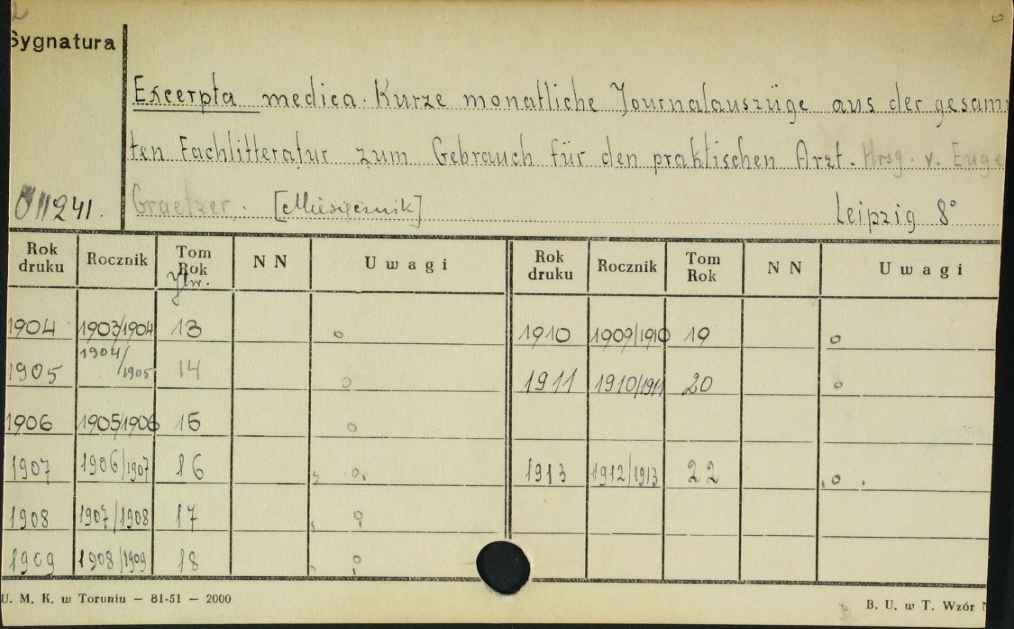 Sygnatura
Excerpta medica. Kurze monatliche Journalauszüge aus der gesam
ten Fachlitteratur zum Gebrauch für den praktischen Arzt. Hrsg. v. Euge
011241. Graetzer. [Miesięcznik] Leipzig 8°
Rok druku Rocznik Tom Rok Ytw. N N Uwagi Rok druku Rocznik Tom Rok N N Uwagi
1904 1903/1904 13 o 1910 1909/1910 19 o
1905 1904/1905 14 o 1911 1910/1911 20 o
1906 1905/1906 15 o
1907 1906/1907 16 o 1913 1912/1913 22 o
1908 1907/1908 17 o
1909 1908/1909 18 o
U. M. K. w Toruniu — 81-51 — 2000 B. U. w T. Wzór